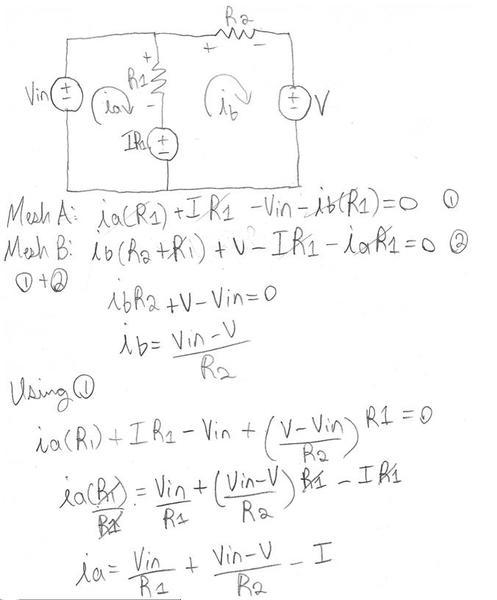 R2
+ -
+
R1
-
Vin
ia
ib
V
IR1
Mesh A: ia(R1) + IR1 - Vin - ib(R1) = 0 ①
Mesh B: ib(R2+R1) + V - IR1 - iaR1 = 0 ②
① + ②
ibR2 + V - Vin = 0
ib = Vin - V / R2
Using ①
ia(R1) + IR1 - Vin + (V - Vin / R2) R1 = 0
ia(R1) / R1 = Vin / R1 + (Vin - V / R2) R1 - IR1
ia = Vin / R1 + Vin - V / R2 - I